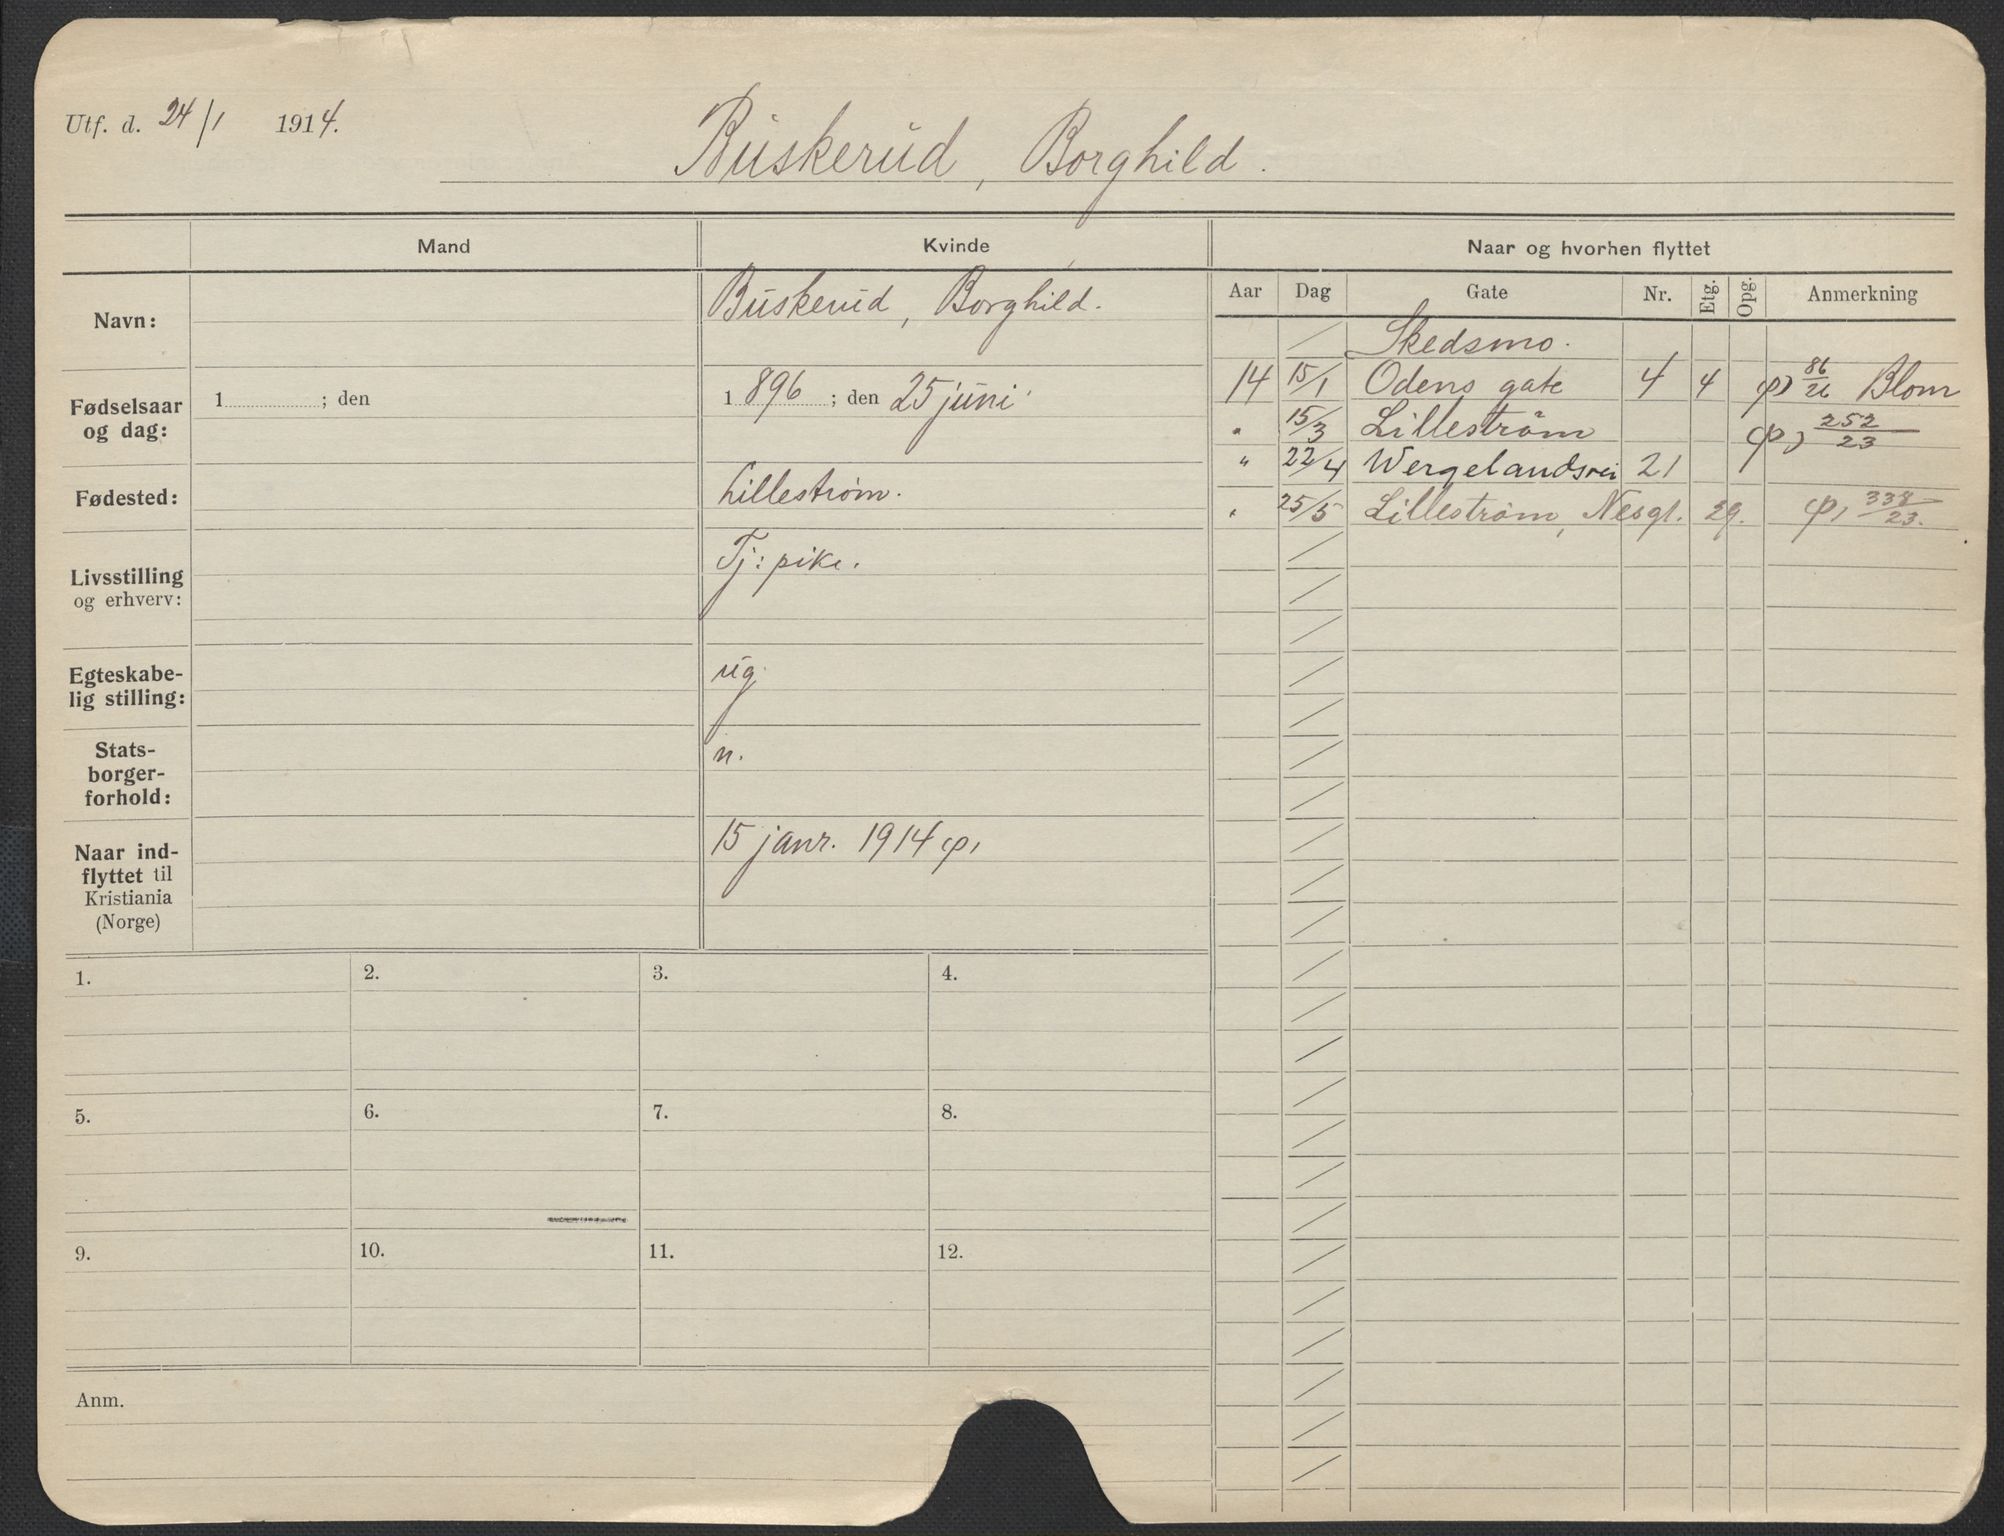 Utf. d. 24/1 1914.
Buskerud, Borghild.
Mand
Kvinde
Naar og hvorhen flyttet
Aar Dag Gate Nr. Etg. Opg. Anmerkning
Navn:
Buskerud, Borghild.
Fødselsaar og dag:
1 ; den
1 896 ; den 25 juni
Fødested:
Lillestrøm.
Livsstilling og erhverv:
Tj: pike.
Egteskabe-
lig stilling:
ug.
Stats-
borger-
forhold:
n.
Naar ind-
flyttet til
Kristiania
(Norge)
15 janr. 1914
/ Skedsmo.
14 15/1 Odens gate 4 4 86/26 Blom
" 15/3 Lillestrøm 252/23
" 22/4 Wergelandsvei 21
" 25/5 Lillestrøm, Nesgt. 29. 338/23.
1. 2. 3. 4.
5. 6. 7. 8.
9. 10. 11. 12.
Anm.